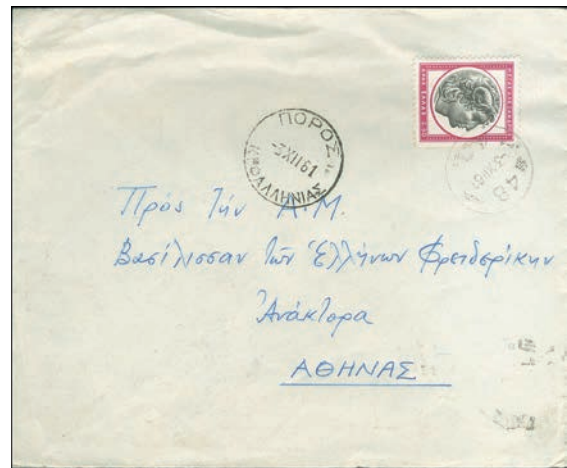 ΠΟΡΟΣ
-3 XII 61
ΚΥΛΛΗΝΙΑΣ
48
Πρὸς Τήν Α.Μ.
Βασίλισσαν τῶν Ἑλλήνων Φρειδερίκην
Ἀνάκτορα
ΑΘΗΝΑΣ